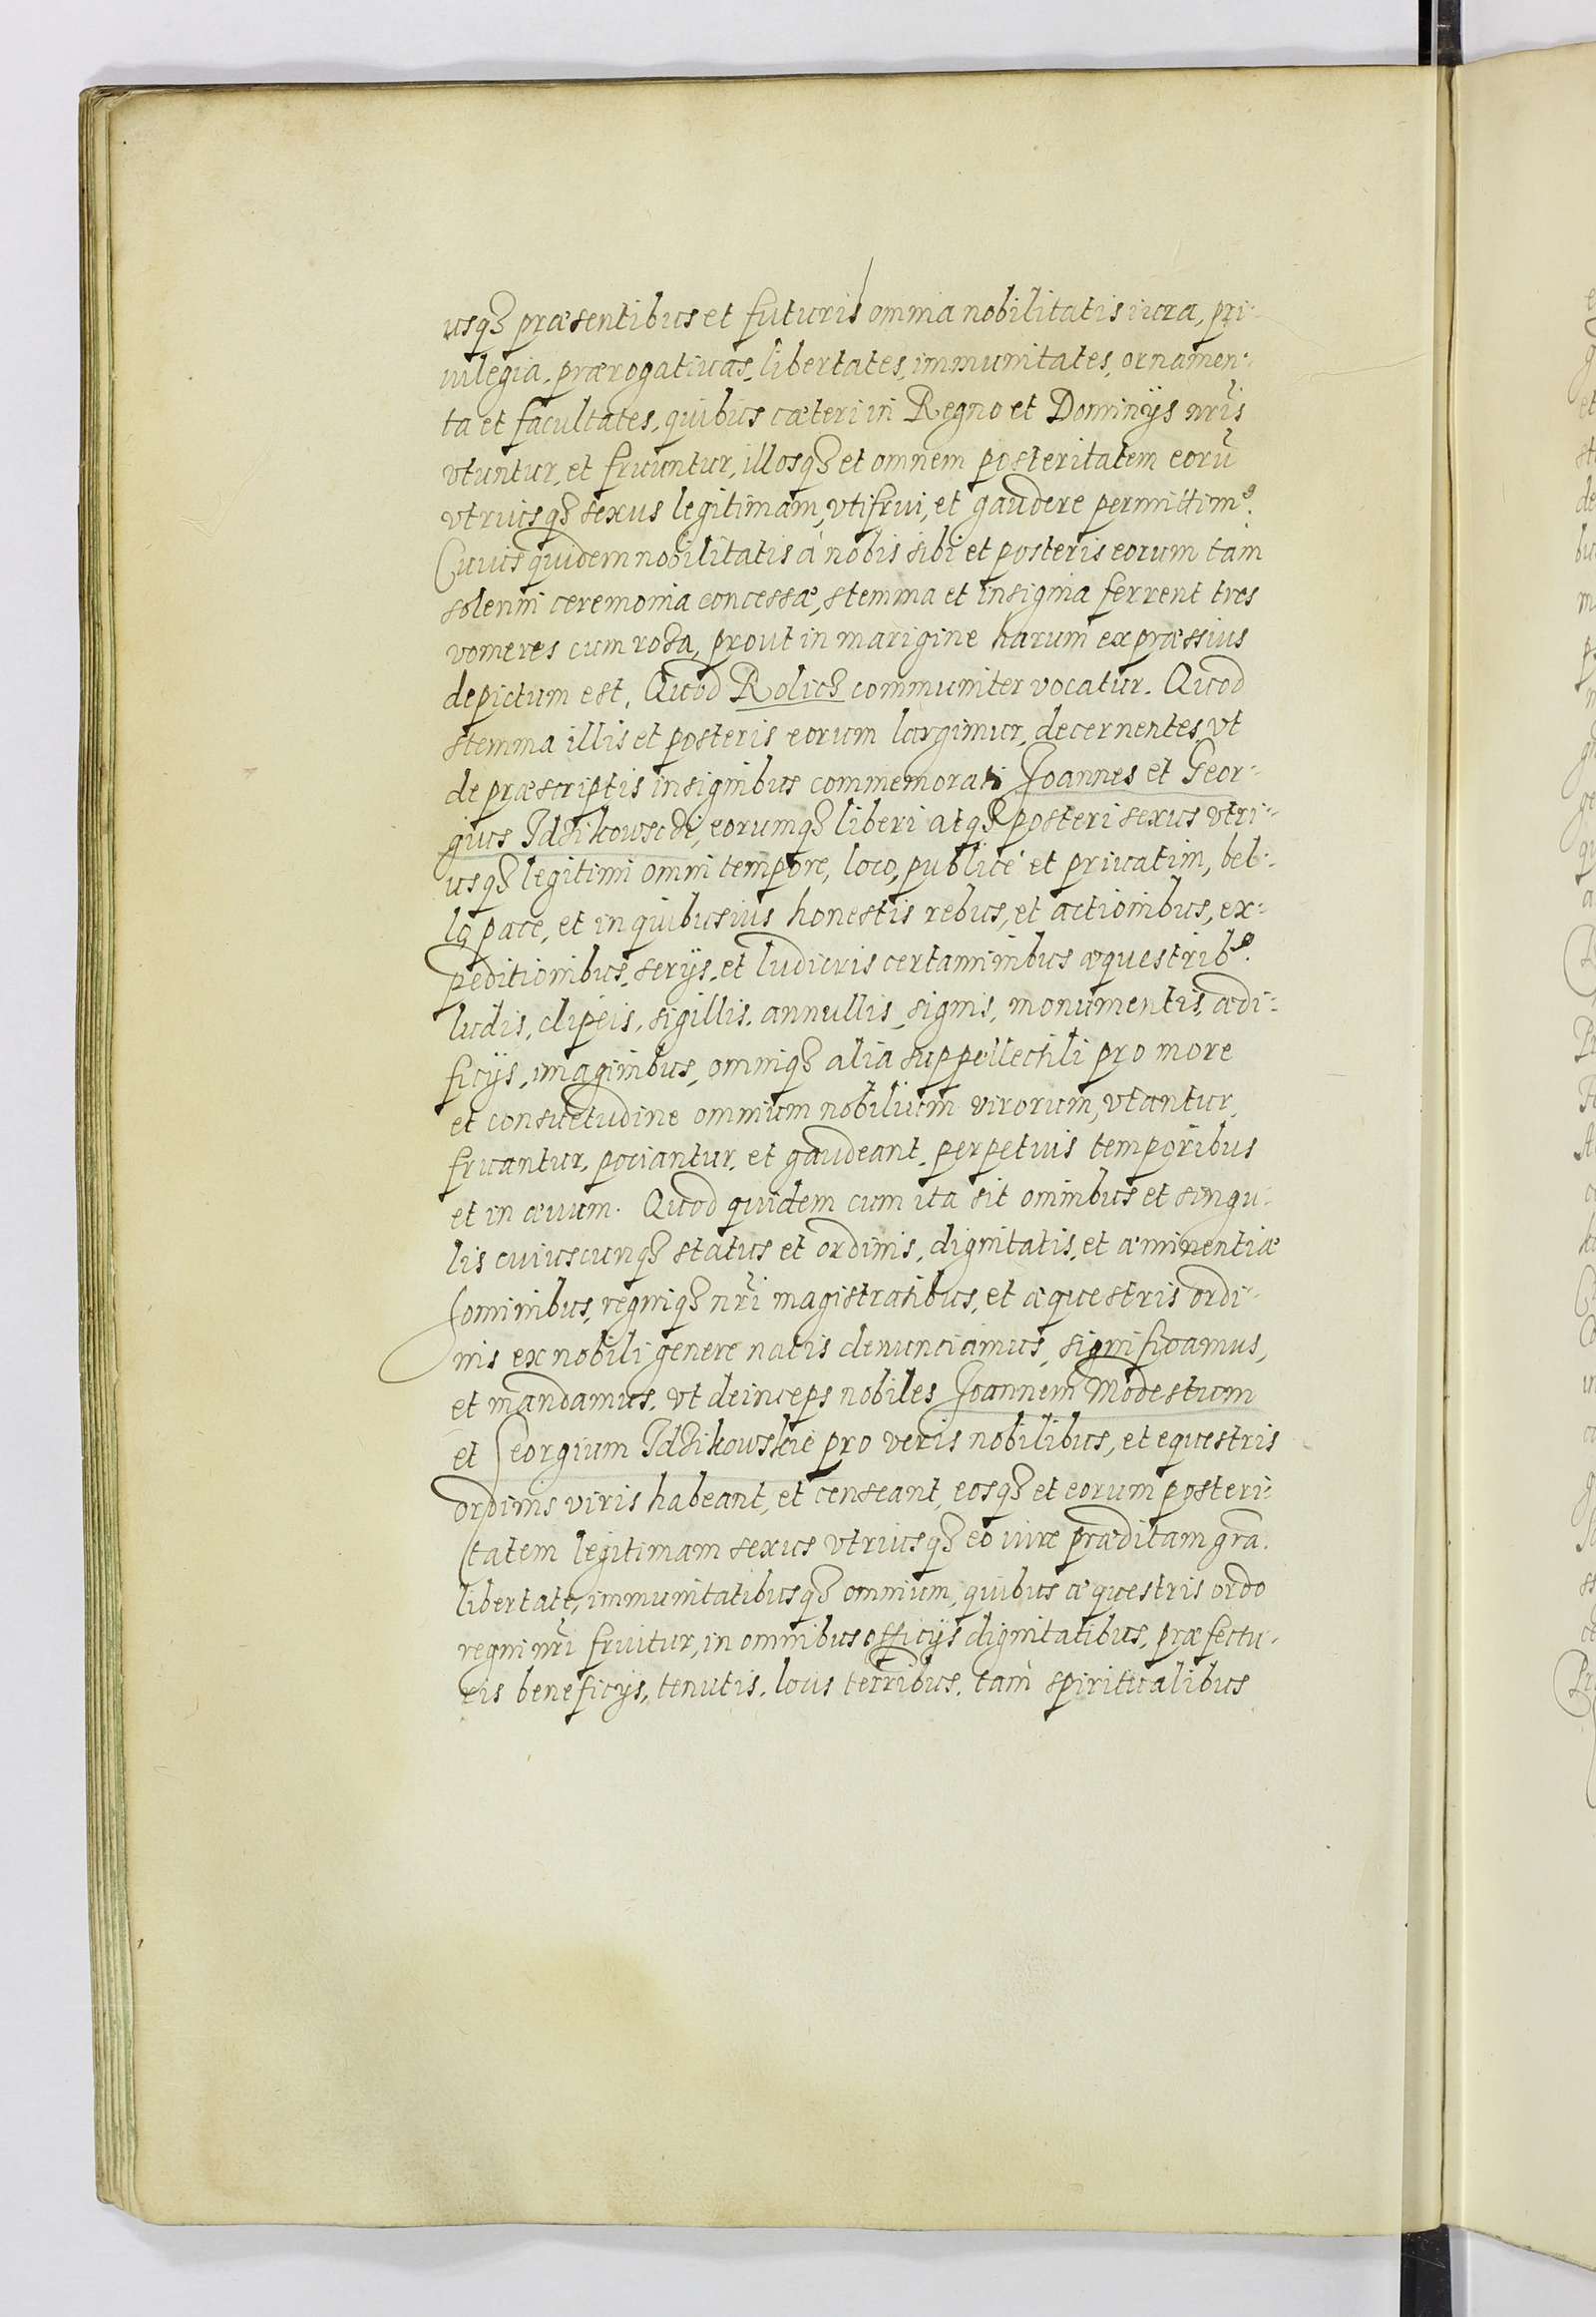 usq3 præsentibus et futuris omnia nobilitatis iura, pri-
uilegia, prærogatiuas, libertates, immunitates, ornamen-
ta et facultates, quibus cæteri in Regno et Dominijs nr̃is
vtuntur, et fruuntur, illosq3 et omnem posteritatem eorũ
vtriusq3 sexus legitimam, vti frui, et gaudere permittimꝰ.
Cuius quidem nobilitatis à nobis sibi et posteris eorum tam
solenni ceremonia concessæ, stemma et insignia ferrent tres
vomeres cum rosa, prout in marigine harum expræssius
depictum est, Quod Rolicz communiter vocatur. Quod
stemma illis et posteris eorum largimur, decernentes vt
de præscriptis insignibus commemorati Joannes et Geor-
gius Idzikowscÿ, eorumq3 liberi atq3 posteri sexus vtri-
usq3 legitimi omni tempore, loco, publicè et priuatim, bel-
lo pace, et in quibusuis honestis rebus, et actionibus, ex-
peditionibus, serijs, et ludicris certaminibus æquestribꝰ.
ludis, clipeis, sigillis, annullis, signis, monumentis, ædi-
ficijs, imaginibus, omniq3 alia suppellectili pro more
et consuetudine omnium nobilium virorum, vtantur,
fruantur, pociantur, et gaudeant, perpetuis temporibus
et in æuum. Quod quidem cum ita sit omnibus et singu-
lis cuiuscunq3 status et ordinis, dignitatis, et æminentiæ
hominibus, regniq3 nr̃i magistratibus, et æquestris ordi-
nis ex nobili genere natis denunciamus, significamus,
et mandamus, vt deinceps nobiles Joannem Modestum
et Georgium Idzikowskie pro veris nobilibus, et equestris
ordinis viris habeant, et censeant, eosq3 et eorum posteri-
tatem legitimam sexus vtriusq3 eo iure præditam gra,
libertate, immunitatibusq3 omnium, quibus æquestris ordo
regni nr̃i fruitur, in omnibus officijs dignitatibus, præfectu-
ris beneficijs, tenutis, locis terribus, tam spiritualibus